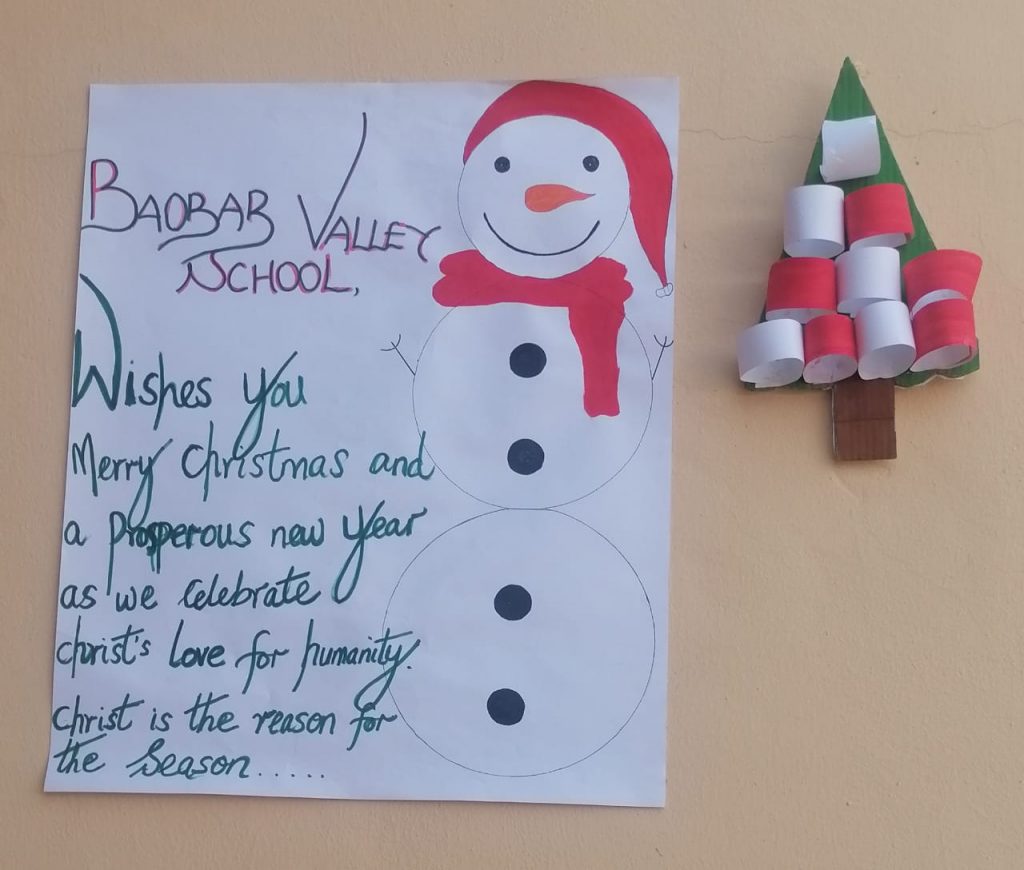 BAOBAB VALLEY
SCHOOL,
Wishes you
Merry Christmas and
a prosperous new year
as we celebrate
christ's love for humanity.
christ is the reason for
the Season.....